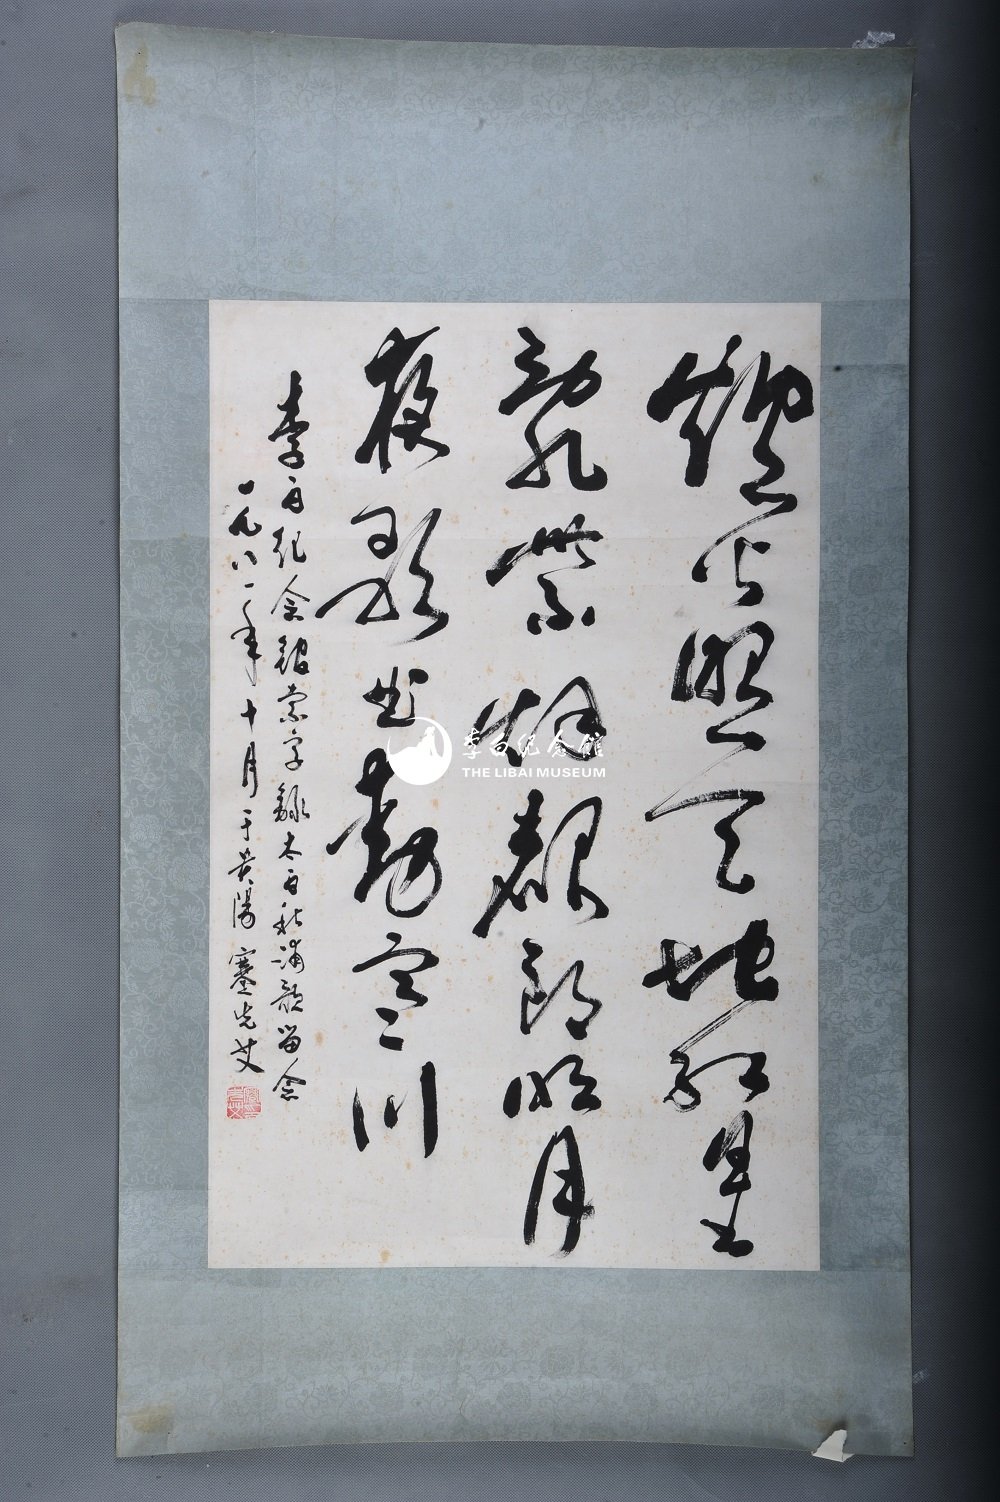 炉火照天地红星
乱紫烟赧郎明月
夜歌曲动寒川
李白纪念馆索字录太白秋浦歌留念
一九八一年十月于贵阳 蹇先艾
李白纪念馆
THE LIBAI MUSEUM